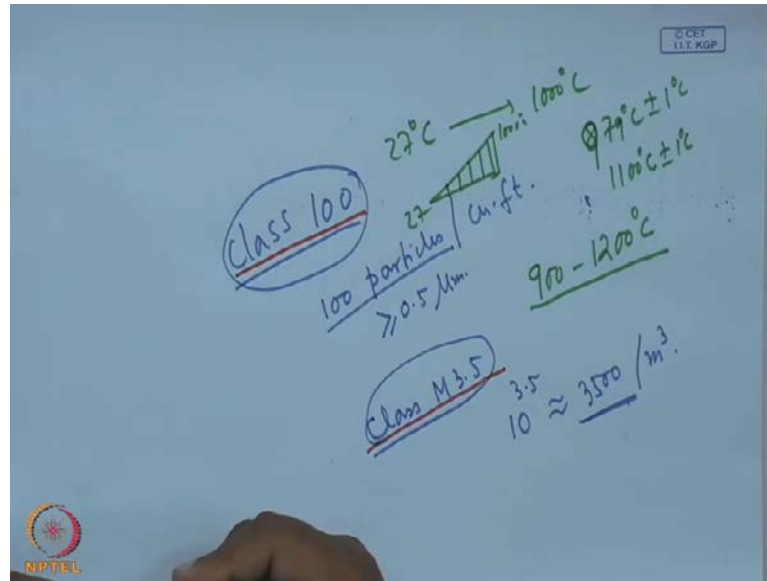 © CET
I.I.T. KGP
27°C ⟶ 1000°C
27
1000°C
979°C ± 1°C
1100°C ± 1°C
Class 100
100 particles / cu.ft.
≥ 0.5 µm.
900 - 1200°C
Class M3.5
10^3.5 ≈ 3500 / m³.
NPTEL